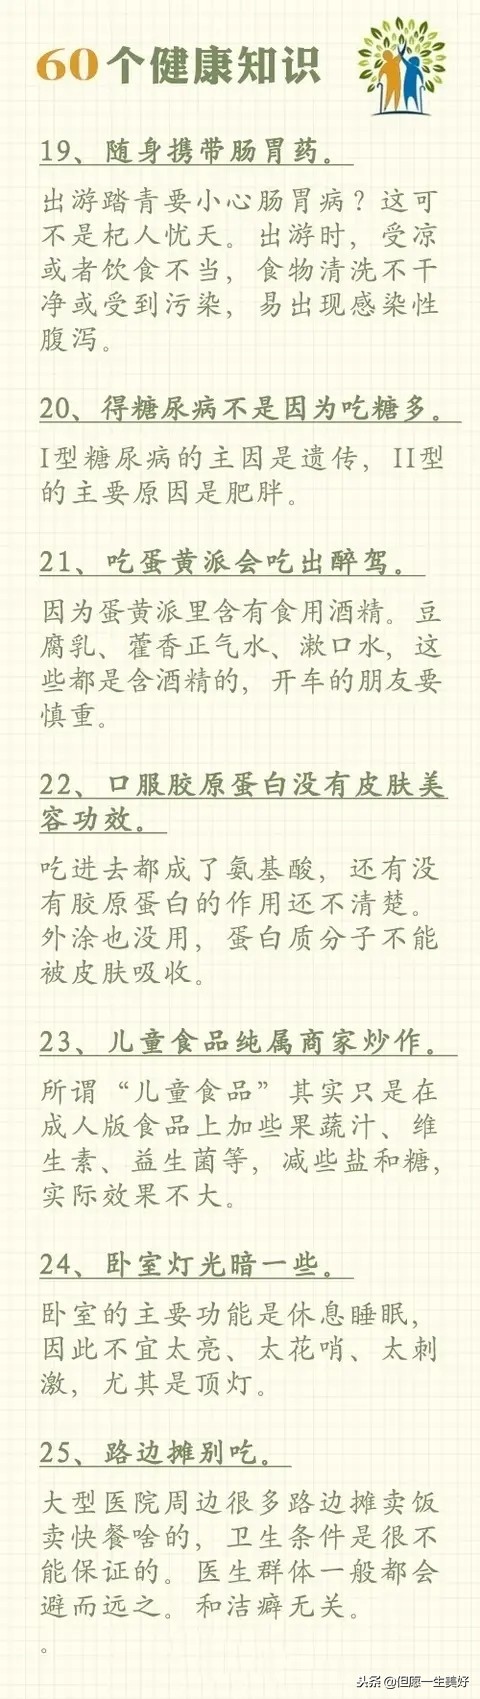 60个健康知识
19、随身携带肠胃药。
出游踏青要小心肠胃病？这可
不是杞人忧天。出游时，受凉
或者饮食不当，食物清洗不干
净或受到污染，易出现感染性
腹泻。
20、得糖尿病不是因为吃糖多。
I型糖尿病的主因是遗传，II型
的主要原因是肥胖。
21、吃蛋黄派会吃出醉驾。
因为蛋黄派里含有食用酒精。豆
腐乳、藿香正气水、漱口水，这
些都是含酒精的，开车的朋友要
慎重。
22、口服胶原蛋白没有皮肤美
容功效。
吃进去都成了氨基酸，还有没
有胶原蛋白的作用还不清楚。
外涂也没用，蛋白质分子不能
被皮肤吸收。
23、儿童食品纯属商家炒作。
所谓“儿童食品”其实只是在
成人版食品上加些果蔬汁、维
生素、益生菌等，减些盐和糖，
实际效果不大。
24、卧室灯光暗一些。
卧室的主要功能是休息睡眠，
因此不宜太亮、太花哨、太刺
激，尤其是顶灯。
25、路边摊别吃。
大型医院周边很多路边摊卖饭
卖快餐啥的，卫生条件是很不
能保证的。医生群体一般都会
避而远之。和洁癖无关。
。
头条 @但愿一生美好